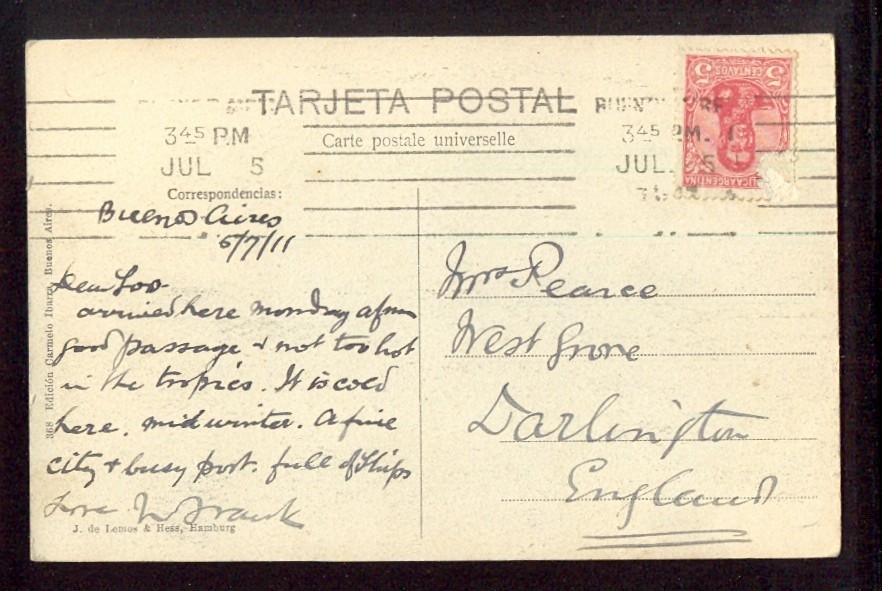 TARJETA POSTAL
Carte postale universelle
3 45 PM
JUL 5
BUEN
3 45 PM.
JUL. 5
5 CENTAVOS 5
LICA ARGENTINA
Correspondencias:
Buenos Aires
5/7/11
Dear
arrived here monday
good passage + not too hot
in the tropics. It is cold
here. midwinter. A fine
city + busy port. full of Ships
Love Frank
Mrs Pearce
West Grove
Darlington
England
368 Edición Carmelo Ibarra, Buenos Aires.
J. de Lemos & Hess, Hamburg